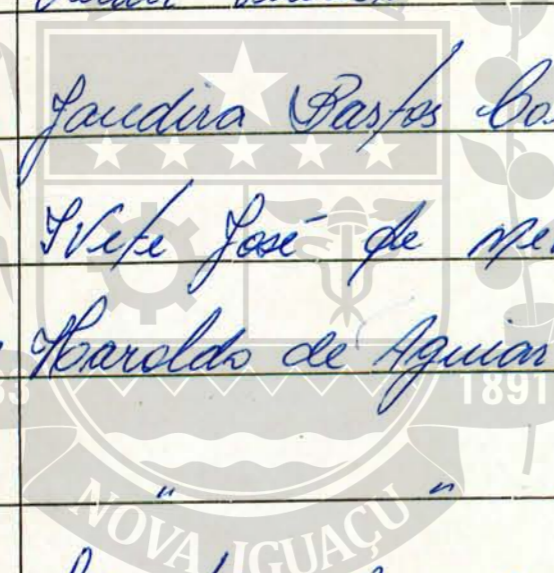 Jandira Bastos
Ivete José de
Haroldo de Aguiar
1891
" "
NOVA IGUAÇU